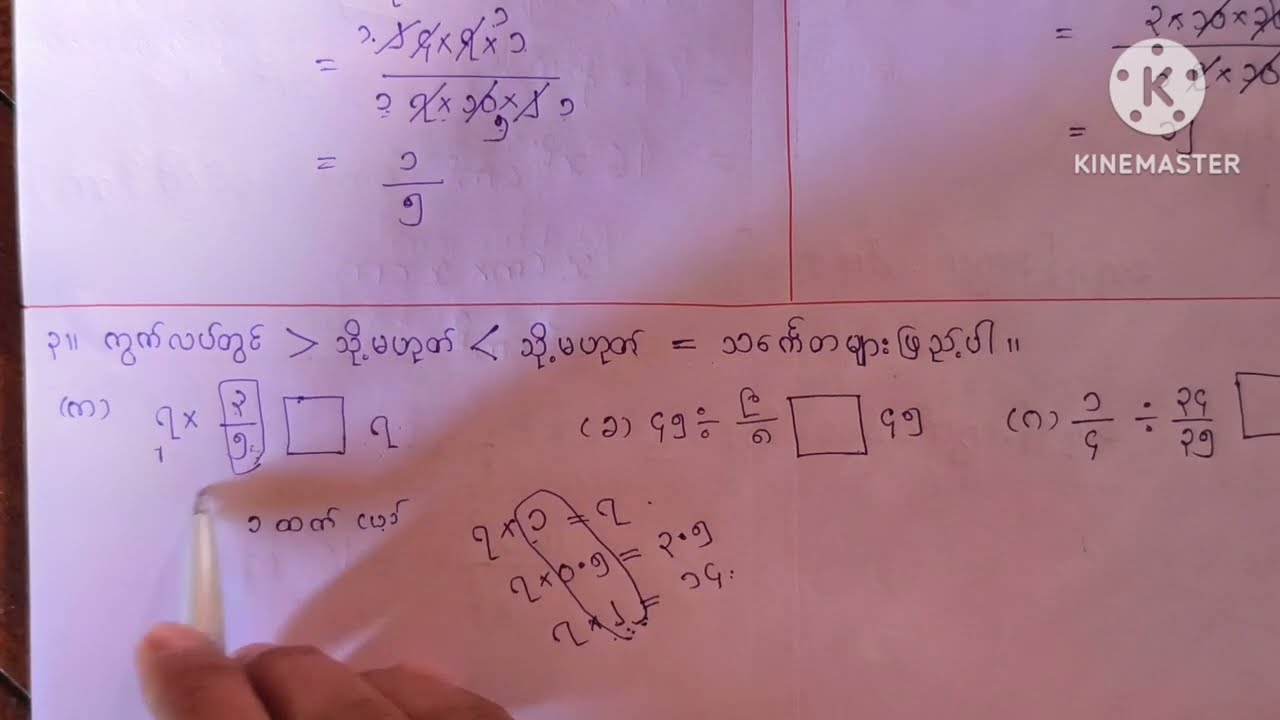 = ၁ ၂ ၄ × ၇ ၁ × ၁ / ၁ ၇ × ၁၀ ၅ × ၂ ၁
= ၁ / ၅
= ၁၅
KINEMASTER
၃။ ကွက်လပ်တွင် > သို့မဟုတ် < သို့မဟုတ် = သင်္ကေတများဖြည့်ပါ။
(က) ၇ × ၃/၅ □ ၇ (ခ) ၄၅ ÷ ၉/၈ □ ၄၅ (ဂ) ၁/၄ ÷ ၃၄/၃၅ □
၁ ထက် ငယ်
၇ × ၁ = ၇
၇ × ၀.၅ = ၃.၅
၇ × ၂ = ၁၄